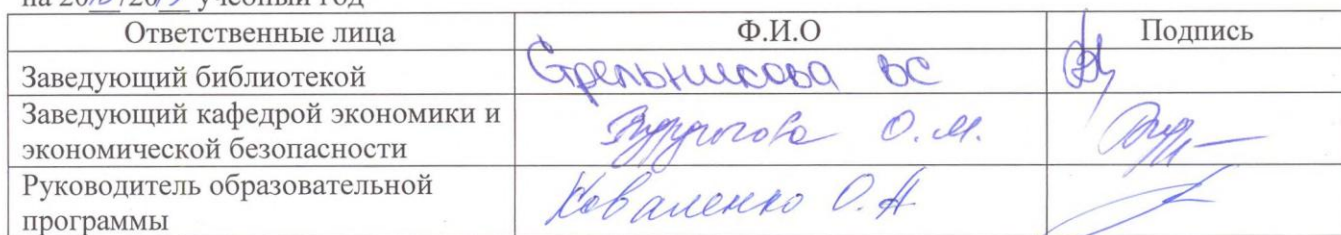 учебный год
Ответственные лица Ф.И.О Подпись
Заведующий библиотекой Стрельникова ВС
Заведующий кафедрой экономики и
экономической безопасности О.М.
Руководитель образовательной
программы Коваленко О.А